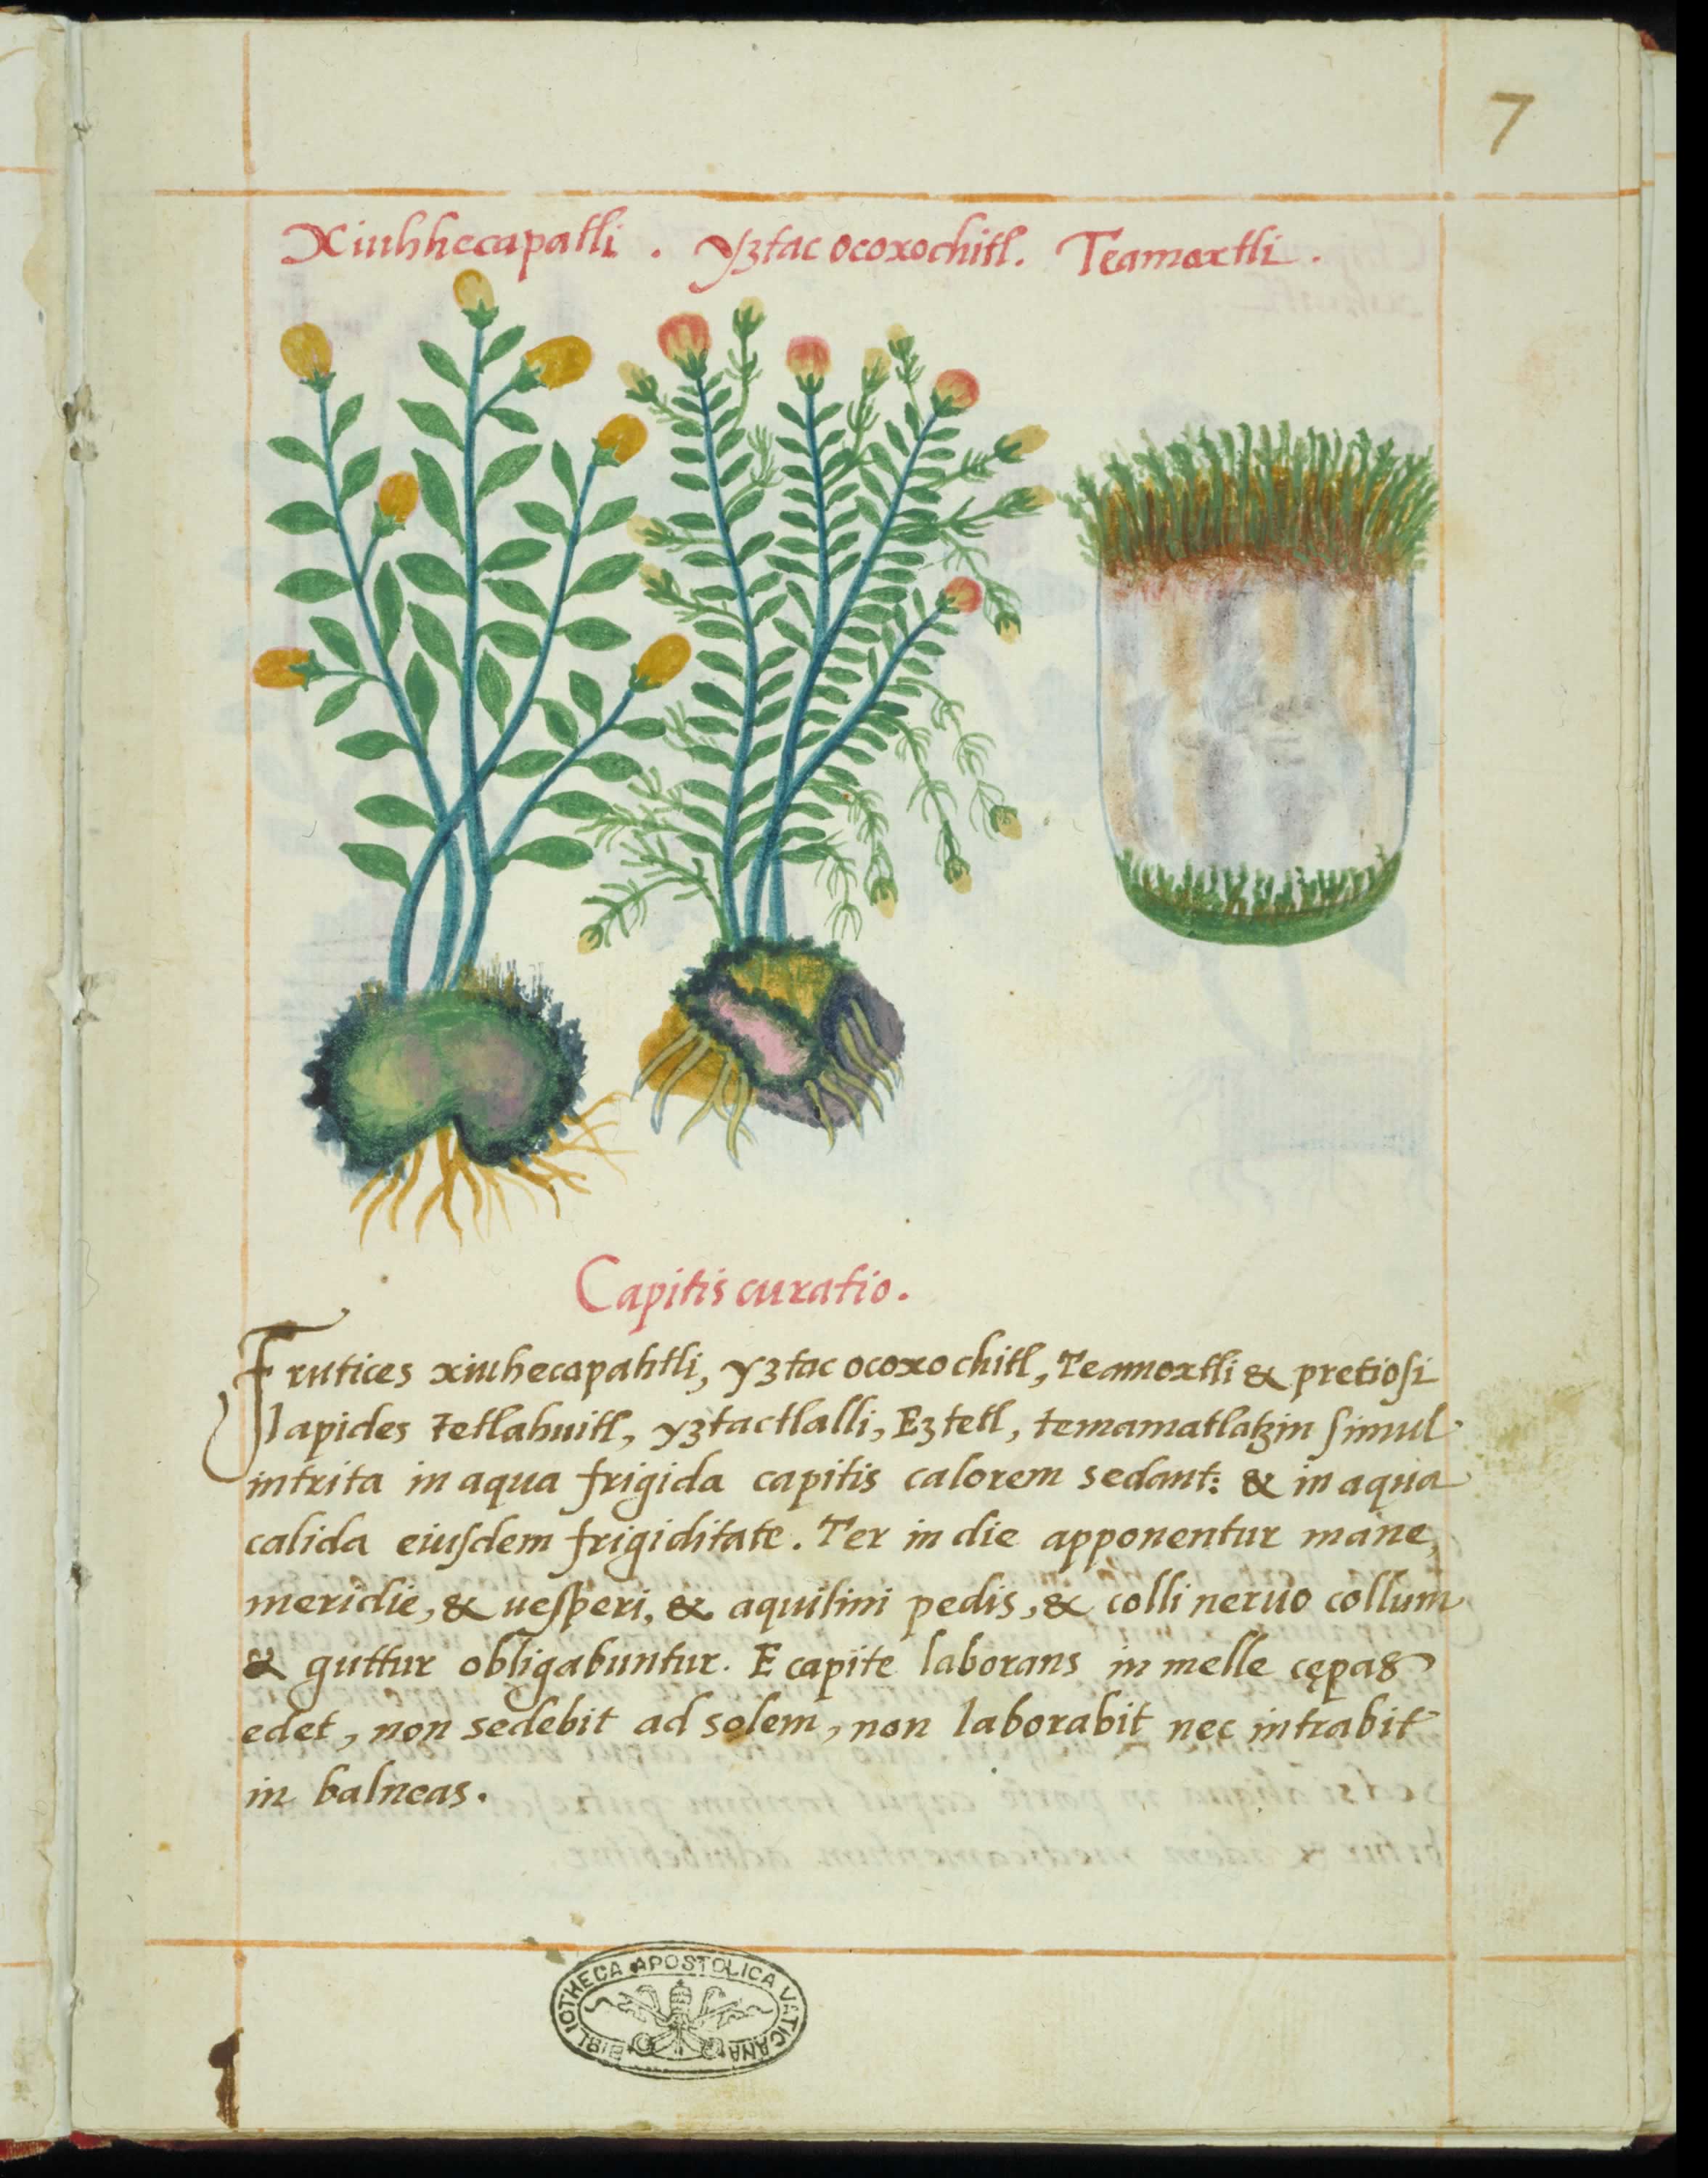 7
Xiuhhecapatli . yztac ocoxochitl. Teamoxtli .
Capitis curatio.
Frutices xiuhecapahtli, yztac ocoxochitl, Teamoxtli & pretiosi
lapides tetlahuitl, yztactlalli, Eztetl, temamatlatzin simul
intrita in aqua frigida capitis calorem sedant: & in aqua
calida eiusdem frigiditate. Ter in die apponentur mane,
meridie, & uesperi, & aquilini pedis, & colli neruo collum
& guttur obligabuntur. E capite laborans in melle cępas
edet, non sedebit ad solem, non laborabit nec intrabit
in balneas.
BIBLIOTHECA APOSTOLICA VATICANA